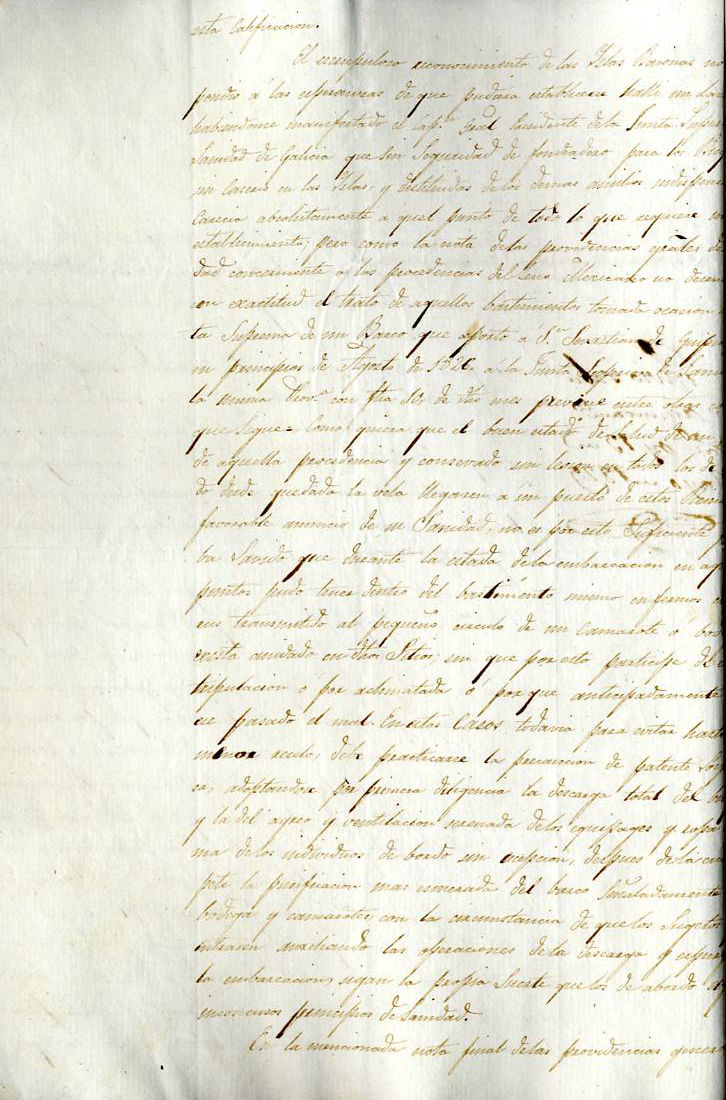 esta calificacion.
El escrupuloso reconocimiento de las Islas Bayonas no
pondió á las esperanzas de que pudiera establecerse
habiendome manifestado el Capn. Gral Presidente de la Junta Super
Sanidad de Galicia que sin seguridad de fondeadero para los
sin caserio en las Islas, y destituidas de los demas ausilios indispens
Carecia absolutamente aquel punto de todo lo que requiere
establecimiento; pero como la nota de las providencias grales de
dad concerniente a las procedencias del seno Mexicano no
con exactitud el trato de aquellos bastimentos tomada ocasion
ta Suprema de un Barco que aportó á Sn. Sebastian de Guipuz
en principios de Agosto de 1826. a la Junta Superior de
la misma Prova. con fha 10 de dho mes previene entre otras
que sigue = Como quiera que el buen estado de salud
de aquella procedencia y conservado sin lesion en todos los
do desde quedada la vela llegasen a un puerto de estos
favorable anuncio de su Sanidad, no es por esto suficiente
ba Sanido que durante la estada de la embarcacion en
puntos pudo tener dentro del bastimento mismo enfermos
sus transmitido al pequeño circulo de un camarote ó
exista anidado en dhos Sitios, sin que por esto participe
tripulacion ó por aclimatada ó porque anticipadamente
se pasado el mal. En estos Casos, todavia para evitar hasta
menor recelo, debe practicarse la precaucion de patente
sa, adoptandose por primera diligencia la descarga total del
y la del ayreo y ventilacion serenada de los equipages y ropa
ma de los individuos de bordo sin escepcion, despues de la
pete la purificacion mas esmerada del barco señaladamente
bodega y camarotes, con la circunstancia de que los Sugetos
entrasen auxiliando las operaciones de la descarga y
la embarcacion, sigan la propia suerte que los de abordo
inconcusos principios de Sanidad.
En la mencionada nota final de las providencias